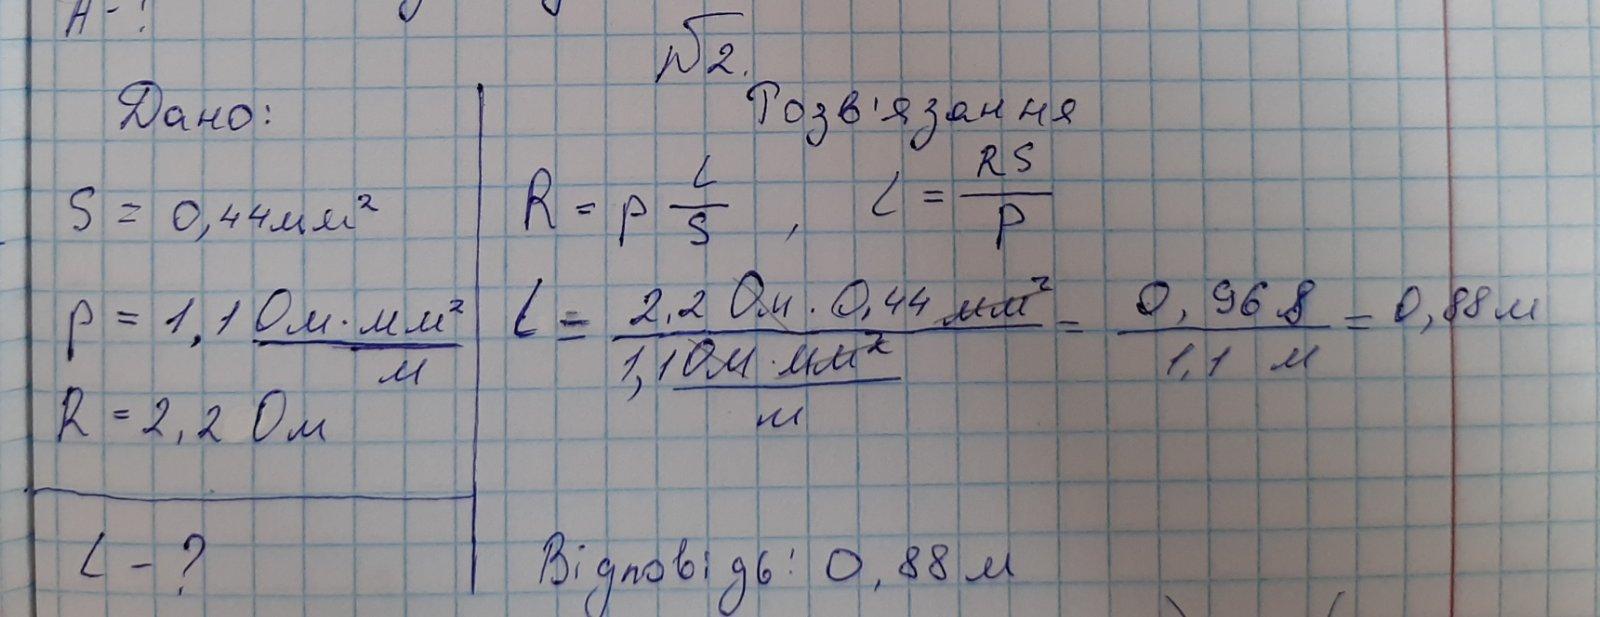 А - ?
№2.
Дано:
S = 0,44мм²
ρ = 1,1 Ом·мм²/м
R = 2,2 Ом
L - ?
Розв'язання
R = ρ L/S , L = RS/ρ
L = 2,2 Ом · 0,44 мм² / 1,1 Ом·мм²/м = 0,968 / 1,1 м = 0,88м
Відповідь: 0,88м